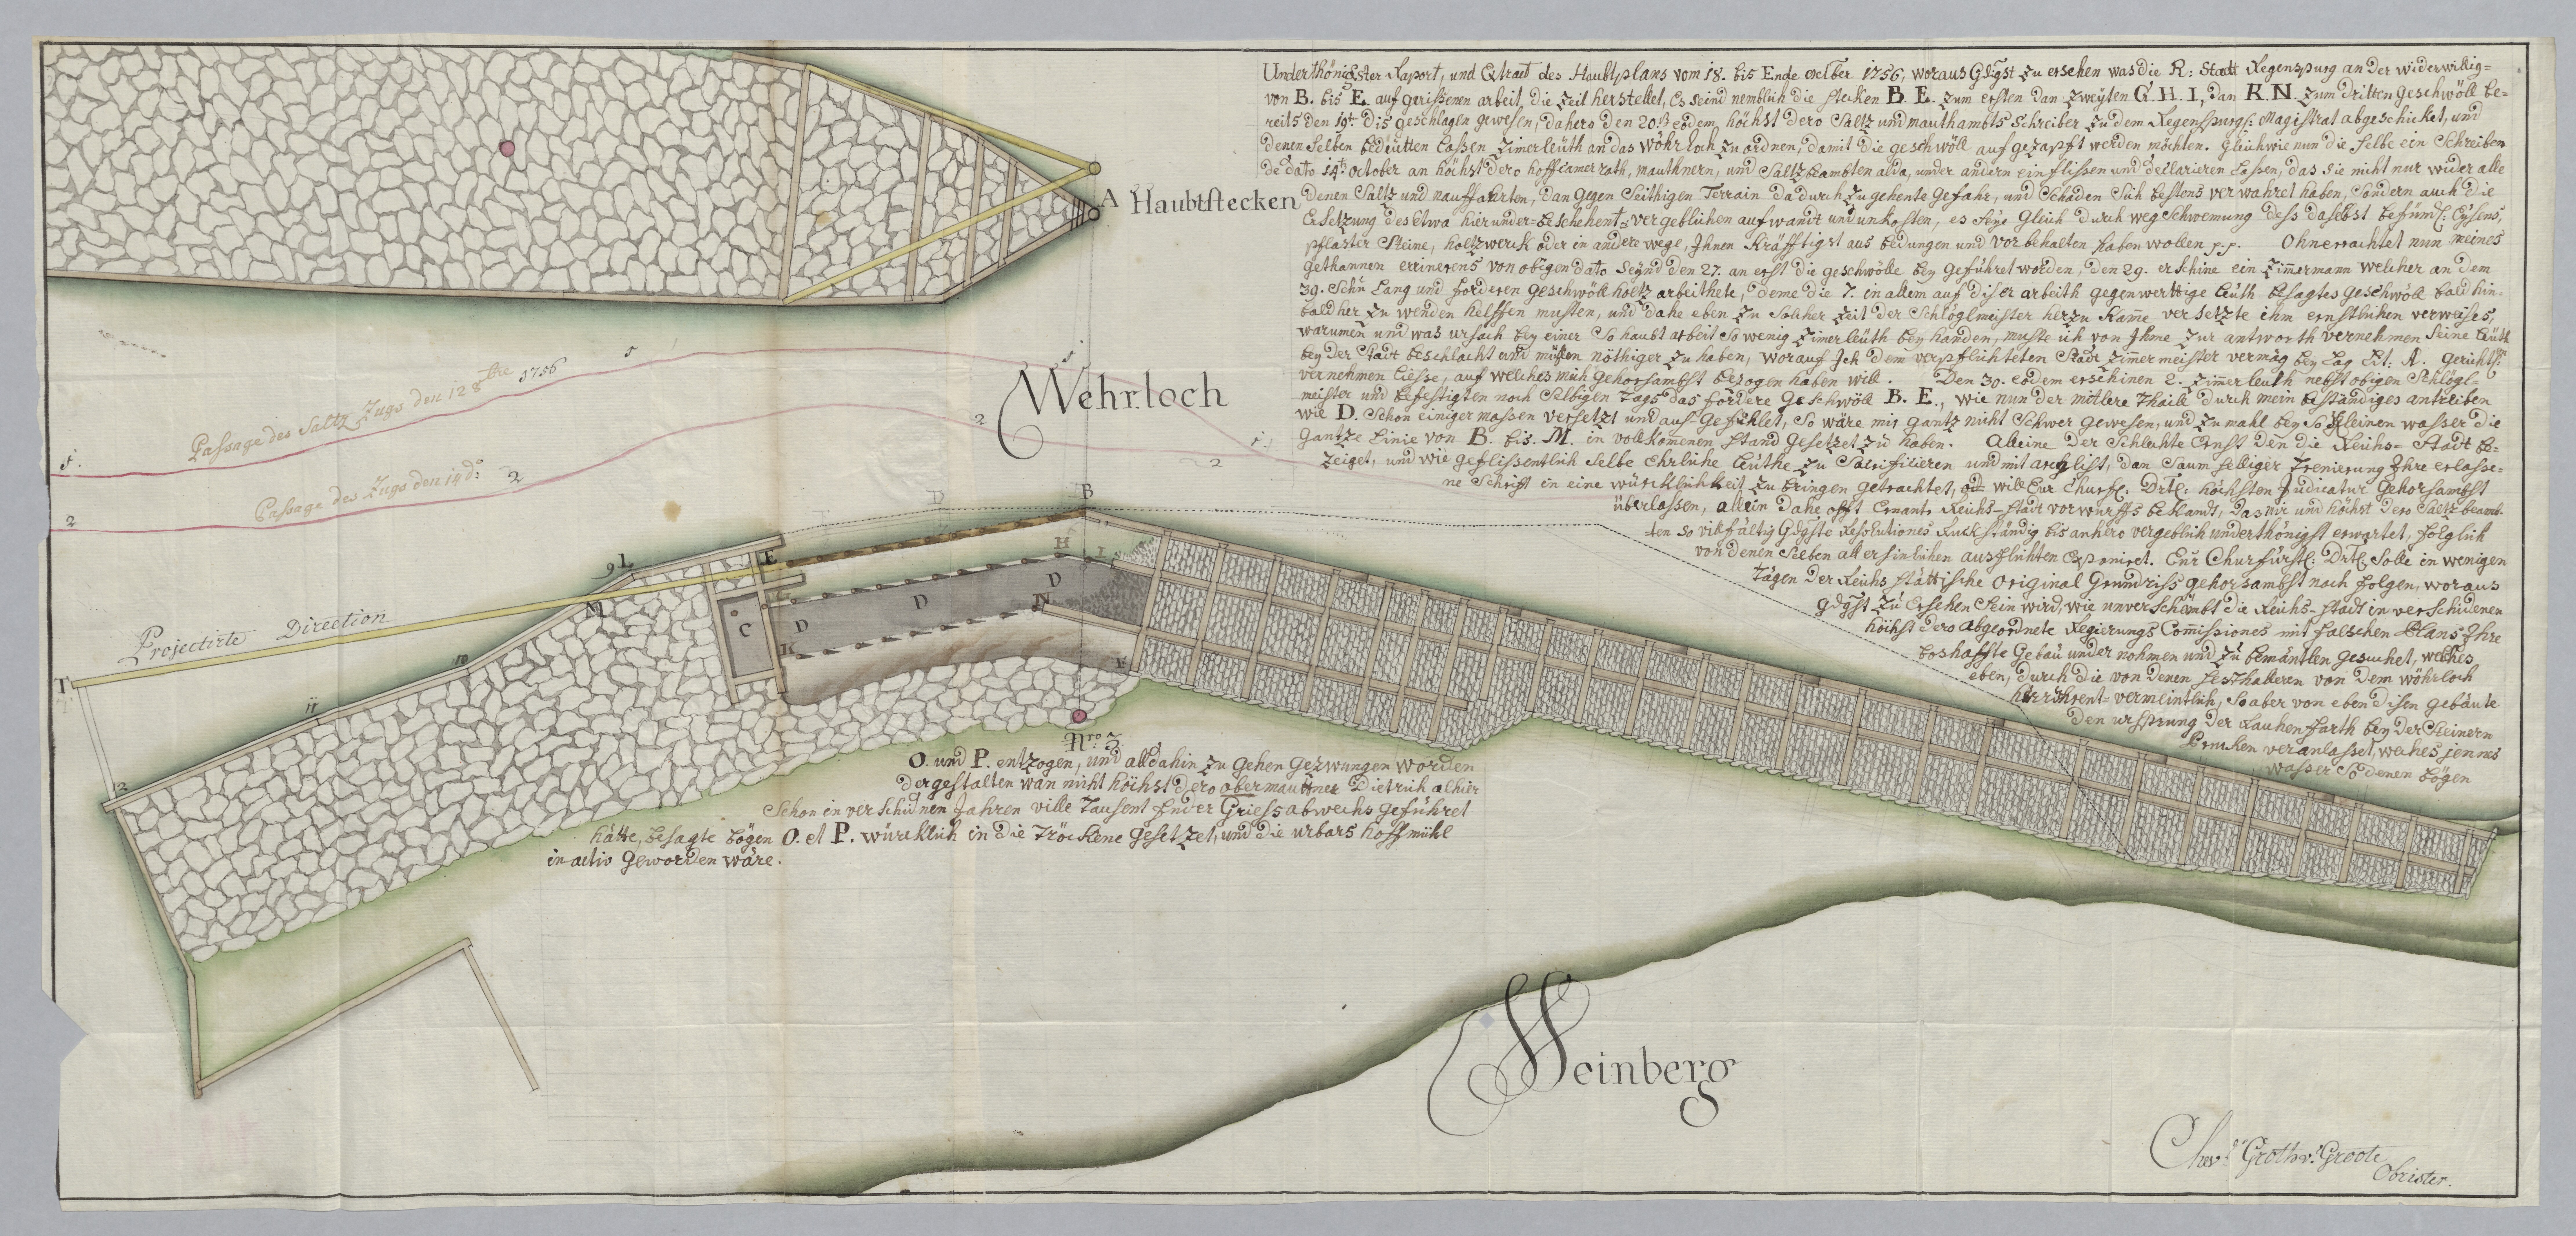 Underthönigster Raport, und Extract des Haubtplans vom 18. bis Ende 8ber 1756, woraus Gdgst zu ersehen was die R: Stadt Regenspurg an der widerwillig=
von B. bis E. auf gerissenen arbeit, die Zeit herstellet, Es seind nemblich die stecken B. E. zum ersten dan zweÿten G. H. I, dan K. N. zum dritten geschwöll be=
reits den 19t. dis geschlagen gewesen, dahero den 20. eodem, höchst dero Saltz und mauthambts schreiber zu dem Regenspurg: Magistrat abgeschicket, und
denen selben bedeütten lassen zimerleüth an das wöhrloch zu ordnen, damit die geschwöll auf gezapft werden möchten. Gleichwie nun die selbe ein Schreiben
de dato 14t. october an höchst dero hoffcamer rath, mauthnern, und Saltzbeambten alda, under andern einflissen und declarieren lassen, das sie nicht nur wider alle
denen Saltz und nauffahrten, dan gegen seithigen Terrain dadurch zugehente gefahr, und schaden sich bestens verwahret haben, sondern auch die
Ersetzung des etwa hierunder= beschehent= vergeblichen aufwandt und unkosten, es seÿe gleich durch weg schwemung dess daselbst befindl: Eÿsens,
pflaster steine, holtzwerck oder in andere wege, Ihnen kräfftigst aus bedungen und vor behalten haben wollen p. p. Ohnerrachtet nun meines
gethannen errinerens von obigen dato seÿnd den 27. an erst die geschwölle beÿ geführet worden, den 29. erschine ein zimmermann welcher an dem
39. Schu lang und forderen geschwöll holtz arbeithete, deme die 7. in allem auf diser arbeith gegenwerttige leüth besagtes geschwöll bald hin=
bald her zu wenden helffen musten, und dahe eben zu solcher zeit der Schlöglmeister herzu kame versetzte ihm ernstlichen verweises,
warumen und was ursach beÿ einer so haubt arbeit so wenig zimerleüth beÿ handen, muste ich von Ihme zur antworth vernehmen seine leüth
beÿ der Stadt beschlacht und müssen nöthiger zu haben, worauf Ich dem verpflichteten Stadt zimmermeister vermög beÿ lag Lit: A. gerichtl:
vernehmen liesse, auf welches mich gehorsambst bezogen haben will. Den 30. eodem erschinen 2. zimerleuth nebst obigen Schlögl=
meister und befestigten noch selbigen Tags das fordere geschwöll B. E., wie nun der mitlere Thaile durch mein beständiges antreiben
wie D. schon einiger massen versetzt und auf gefüllet, so wäre mir gantz nicht schwer gewesen, und zu mahl beÿ so kleinen wasser die
gantze linie von B. bis. M. in vollkomenen stand gesetzet zu haben. Alleine der schlechte Ernst den die Reichs-Stadt be=
zeiget, und wie geflissentlich selbe Ehrliche leüthe zu sacrificieren und mit arglist, dan saum seeliger Ihre erlasse=
ne Schrift in eine würcklichkeit zu bringen getrachtet, will Eur Churfl: Drtl: höchsten Judicatur gehorsambst
überlassen, allein dahe offt Ernant Reichs-Stadt vorwurffs beklandt, das mir und höchst dero Saltz beamb=
ten so vilfältig Gdgste Resolutiones Ruckständig bis anhero vergeblich underthönigst erwartet, folglich
von denen selben all ersinlichen ausflichten Exponiret. Eur Churfürstl: Drtl: solle in wenigen
Tägen der Reichs stättische Original Grundriss gehorsambst noch folgen, woraus
gdgst zu ersehen sein wird, wie unverschambt die Reichs-Stadt in verschidenen
höchst dero abgeordnete Regierungs Commissiones mit falschen Plans Ihre
boshaffte gebäu under nohmen und zu bemäntlen gesuchet, welches
eben, durch die von denen von dem wöhrloch
herrührent= vermeintlich, so aber von eben disen gebäute
den ursprung der Rauhen farth beÿ der steinern
Brucken veranlasset, welches jennes
wasser so denen bögen
A Haubtstecken
Passage des Saltz Zugs den 12 8bre 1756
1
1
1
1
1
Passage des Zugs den 19 d:
2
2
2
2
Wehrloch
B
D
E
9 L
M
H
I
G
D
D
D
C
N
K
F
Projectirte Direction
T
10
11
2
Nro 2
O. und P. entzogen, und alldahin zu gehen gezwungen worden
dergestalten wan nicht höchst dero obermauttner Dietrich alhier
schon in verschidnen Jahren ville Tausent fuder Griess abwechs geführet
hätte, besagte bögen O. et P. würcklich in die Tröckene gesetzet, und die urbars hoffmühl
in activ geworden wäre.
Weinberg
Chev: Groth v: Groote
Obrister.